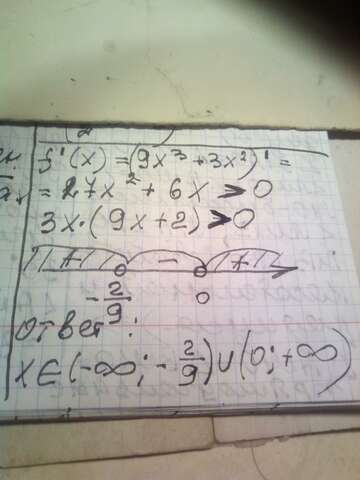 f'(x) = (9x³ + 3x²)' =
= 27x² + 6x > 0
3x·(9x+2) > 0
+ - +
-2/9 0
Ответ:
x∈(-∞; -2/9)∪(0; +∞)